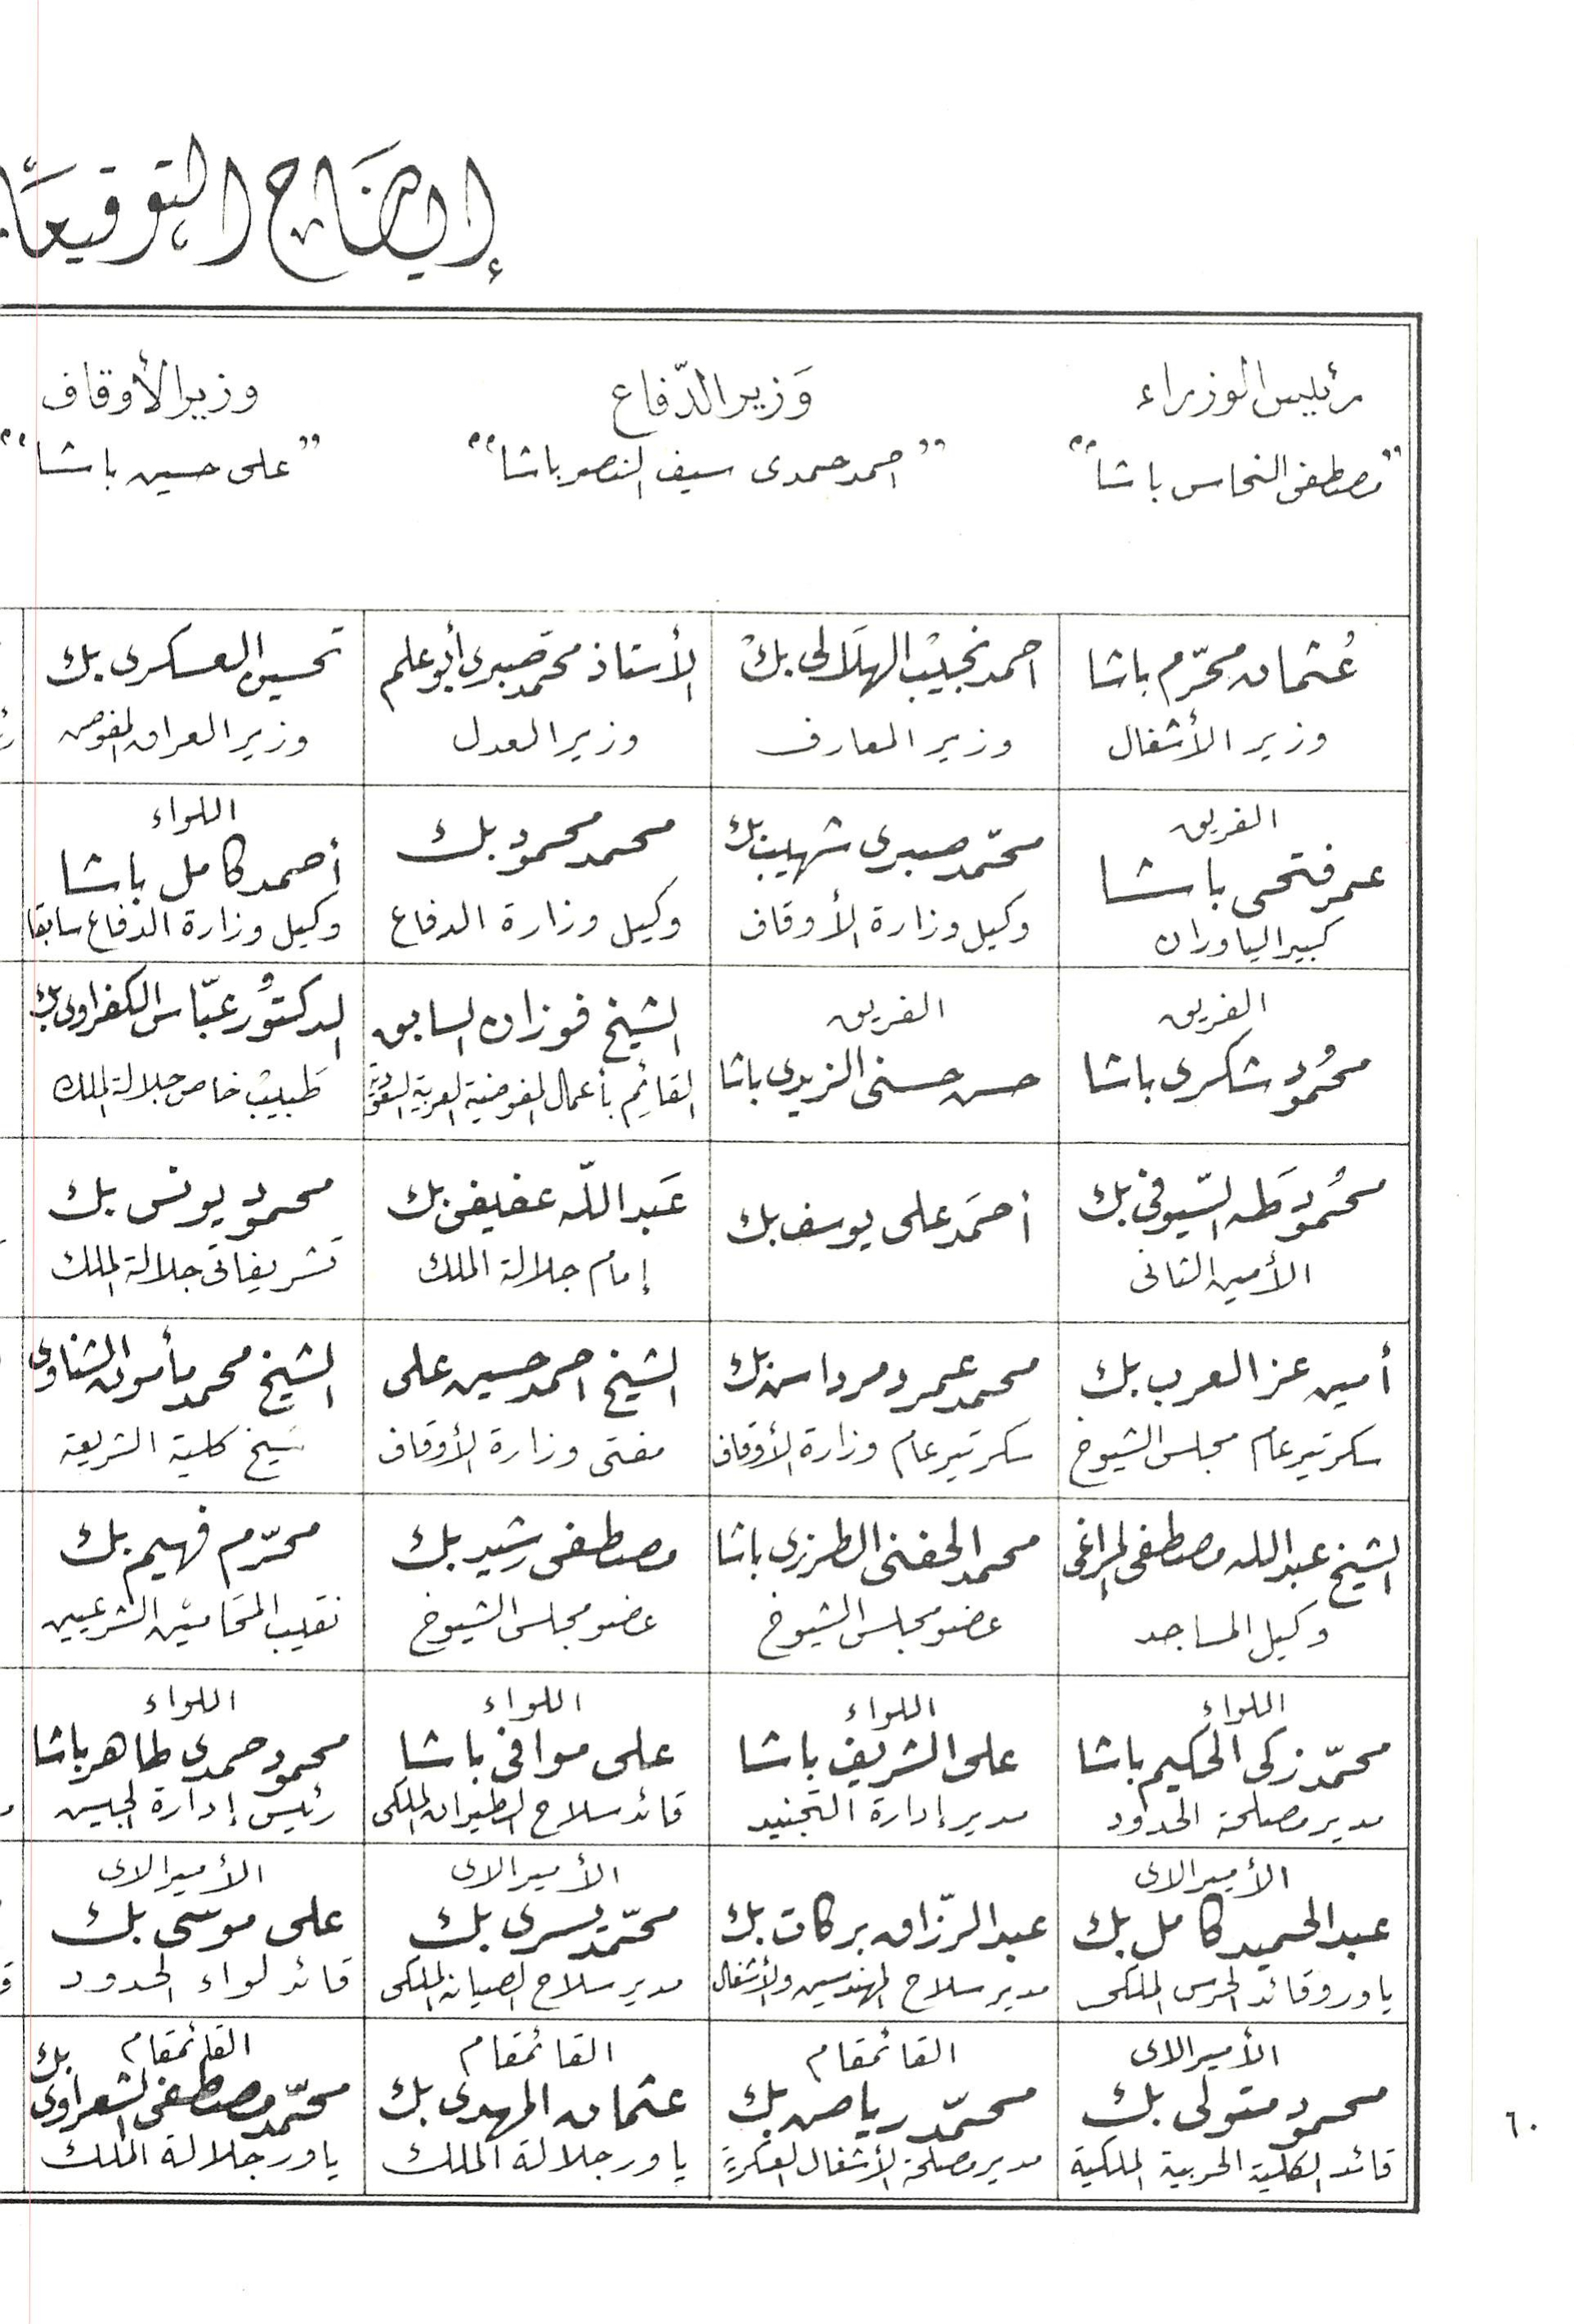 إيضاح التوقيعا
رئيس الوزراء
"مصطفى النحاس باشا"
وَزير الدّفاع
"احمد حمدى سيف النصر باشا"
وزير الأوقاف
"على حسين باشا"
عُثمان محرّم باشا
وزير الأشغال
احمد نجيبْ الهلَالى بكْ
وزير المعارف
الأستاذ محمّد صبرى أبو علم
وزير العدل
تحسين العسكرى بك
وزير العراق المفوض
الفريق
عمر فتحى باشا
كبير الياوران
محمّد صبرى شهيب بك
وكيل وزارة الأوقاف
محمد محمود بك
وكيل وزارة الدفاع
اللواء
أحمد كامل باشا
وكيل وزارة الدفاع سابقا
الفريق
محمُود شكرى باشا
الفريق
حسن حسنى الزيدى باشا
الشيخ فوزان السابق
القائِم بأعمال المفوضية العربية السعوديَّة
الدكتوُر عبّاس الكفراوى بك
طَبيبْ خاص جلالة الملك
محمُود طَه السّيوفى بك
الأمين الثانى
أحمَد على يوسف بك
عَبد اللّه عفيفى بك
إمام جلالة الملك
محمود يونس بك
تشريفاتى جلالة الملك
أمين عز العرب بك
سكرتير عام مجلس الشيوخ
محمد عمر دمرداش بك
سكرتير عام وزارة الأوقاف
الشيخ احمد حسين على
مفتى وزارة الأوقاف
الشيخ محمد مأمون الشناوى
شيخ كلية الشريعة
الشيخ عبد الله مصطفى المراغى
وكيل المساجد
محمد الحفنى الطرزى باشا
عضو مجلس الشيوخ
مصطفى رشيد بك
عضو مجلس الشيوخ
محرّم فهيم بك
نقيب المحَاميْن الشرعيين
اللواء
محمّد زكى الحكيم باشا
مدير مصلحة الحدود
اللواء
على الشريف باشا
مدير إدارة التجنيد
اللواء
على موافى باشا
قائد سلاح الطيران الملكى
اللواء
محمود حمدى طاهر باشا
رئيس إدارة الجيش
الأميرالاى
عبد الحميد كامل بك
ياور وقائد الحرس الملكى
عبد الرزّاق بركات بك
مدير سلاح المهندسين والأشغال
الأميرالاى
محمّد يسرى بك
مدير سلاح الصيانة الملكى
الأميرالاى
على موسى بك
قائد لواء الحدود
الأميرالاى
محمود متولى بك
قائد الكلية الحربية الملكية
القائمقام
محمّد رياض بك
مدير مصلحة الأشغال العسكريَّة
القائمقام
عثمان المهدى بك
ياور جلالة الملك
القائمقام
محمّد مصطفى الشعراوى بك
ياور جلالة الملك
٦٠